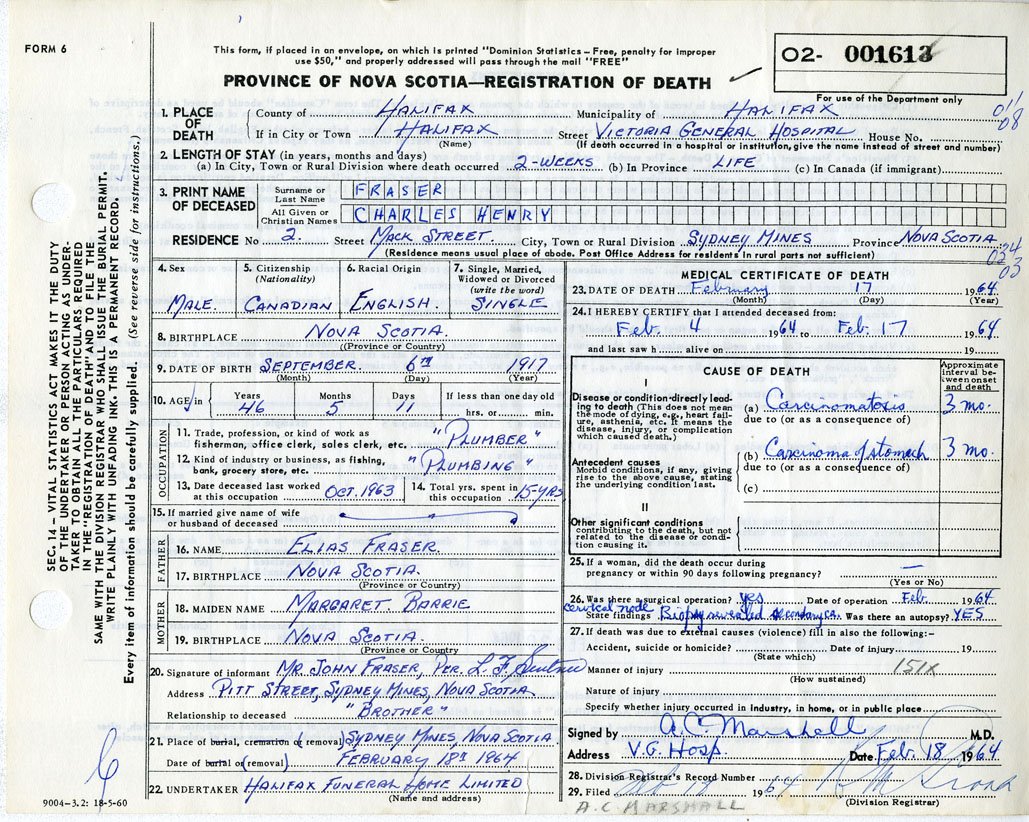 FORM 6
This form, if placed in an envelope, on which is printed "Dominion Statistics – Free, penalty for improper
use $50," and properly addressed will pass through the mail "FREE"
PROVINCE OF NOVA SCOTIA—REGISTRATION OF DEATH
02- 001613
For use of the Department only
011
08
SEC. 14 – VITAL STATISTICS ACT MAKES IT THE DUTY
OF THE UNDERTAKER OR PERSON ACTING AS UNDER-
TAKER TO OBTAIN ALL THE PARTICULARS REQUIRED
IN THE "REGISTRATION OF DEATH" AND TO FILE THE
SAME WITH THE DIVISION REGISTRAR WHO SHALL ISSUE THE BURIAL PERMIT.
WRITE PLAINLY WITH UNFADING INK. THIS IS A PERMANENT RECORD.
Every item of information should be carefully supplied. (See reverse side for instructions.)
1. PLACE OF DEATH
County of HALIFAX Municipality of HALIFAX
If in City or Town HALIFAX Street VICTORIA GENERAL HOSPITAL House No.
(Name) (If death occurred in a hospital or institution, give the name instead of street and number)
2. LENGTH OF STAY (in years, months and days)
(a) In City, Town or Rural Division where death occurred 2-WEEKS (b) In Province LIFE (c) In Canada (if immigrant)
3. PRINT NAME OF DECEASED
Surname or Last Name FRASER
All Given or Christian Names CHARLES HENRY
RESIDENCE No 2. Street MACK STREET. City, Town or Rural Division SYDNEY MINES Province NOVA SCOTIA
(Residence means usual place of abode. Post Office Address for residents in rural parts not sufficient)
024
03
4. Sex MALE.
5. Citizenship (Nationality) CANADIAN
6. Racial Origin ENGLISH.
7. Single, Married, Widowed or Divorced (write the word) SINGLE
8. BIRTHPLACE NOVA SCOTIA.
(Province or Country)
9. DATE OF BIRTH SEPTEMBER. 6TH 1917
(Month) (Day) (Year)
10. AGE in Years 46 Months 5 Days 11 If less than one day old hrs. or min.
OCCUPATION
11. Trade, profession, or kind of work as fisherman, office clerk, sales clerk, etc. "PLUMBER"
12. Kind of industry or business, as fishing, bank, grocery store, etc. "PLUMBING"
13. Date deceased last worked at this occupation OCT. 1963
14. Total yrs. spent in this occupation 15-YRS
15. If married give name of wife or husband of deceased
FATHER
16. NAME ELIAS FRASER.
17. BIRTHPLACE NOVA SCOTIA.
(Province or Country)
MOTHER
18. MAIDEN NAME MARGARET. BARRIE
19. BIRTHPLACE NOVA SCOTIA.
(Province or Country)
20. Signature of informant MR. JOHN FRASER, PER. L. F.
Address PITT STREET, SYDNEY MINES, NOVA SCOTIA
Relationship to deceased "BROTHER"
21. Place of burial, cremation or removal SYDNEY MINES, NOVA SCOTIA.
Date of burial or (removal) FEBRUARY 18th 1964
22. UNDERTAKER HALIFAX FUNERAL HOME LIMITED
(Name and address)
9004-3.2: 18-5-60
MEDICAL CERTIFICATE OF DEATH
23. DATE OF DEATH February 17 1964
(Month) (Day) (Year)
24. I HEREBY CERTIFY that I attended deceased from:
Feb. 4 1964 to Feb. 17 1964
and last saw h alive on 19
CAUSE OF DEATH
Approximate interval between onset and death
I
Disease or condition directly leading to death (This does not mean the mode of dying, e.g., heart failure, asthenia, etc. It means the disease, injury, or complication which caused death.)
(a) Carcinomatosis 3 mo.
due to (or as a consequence of)
Antecedent causes
Morbid conditions, if any, giving rise to the above cause, stating the underlying condition last.
(b) Carcinoma of stomach 3 mo.
due to (or as a consequence of)
(c)
II
Other significant conditions
contributing to the death, but not related to the disease or condition causing it.
25. If a woman, did the death occur during pregnancy or within 90 days following pregnancy? —
(Yes or No)
26. Was there a surgical operation? yes Date of operation Feb. 1964
State findings cervical node Biopsy revealed secondary ca. Was there an autopsy? YES
27. If death was due to external causes (violence) fill in also the following:–
Accident, suicide or homicide? Date of injury 19
(State which)
Manner of injury 151X
(How sustained)
Nature of injury
Specify whether injury occurred in industry, in home, or in public place
Signed by A.C. Marshall M.D.
Address V.G. Hosp. Date Feb. 18 1964
28. Division Registrar's Record Number
29. Filed Feb 19 1964
(Division Registrar)
A.C. MARSHALL